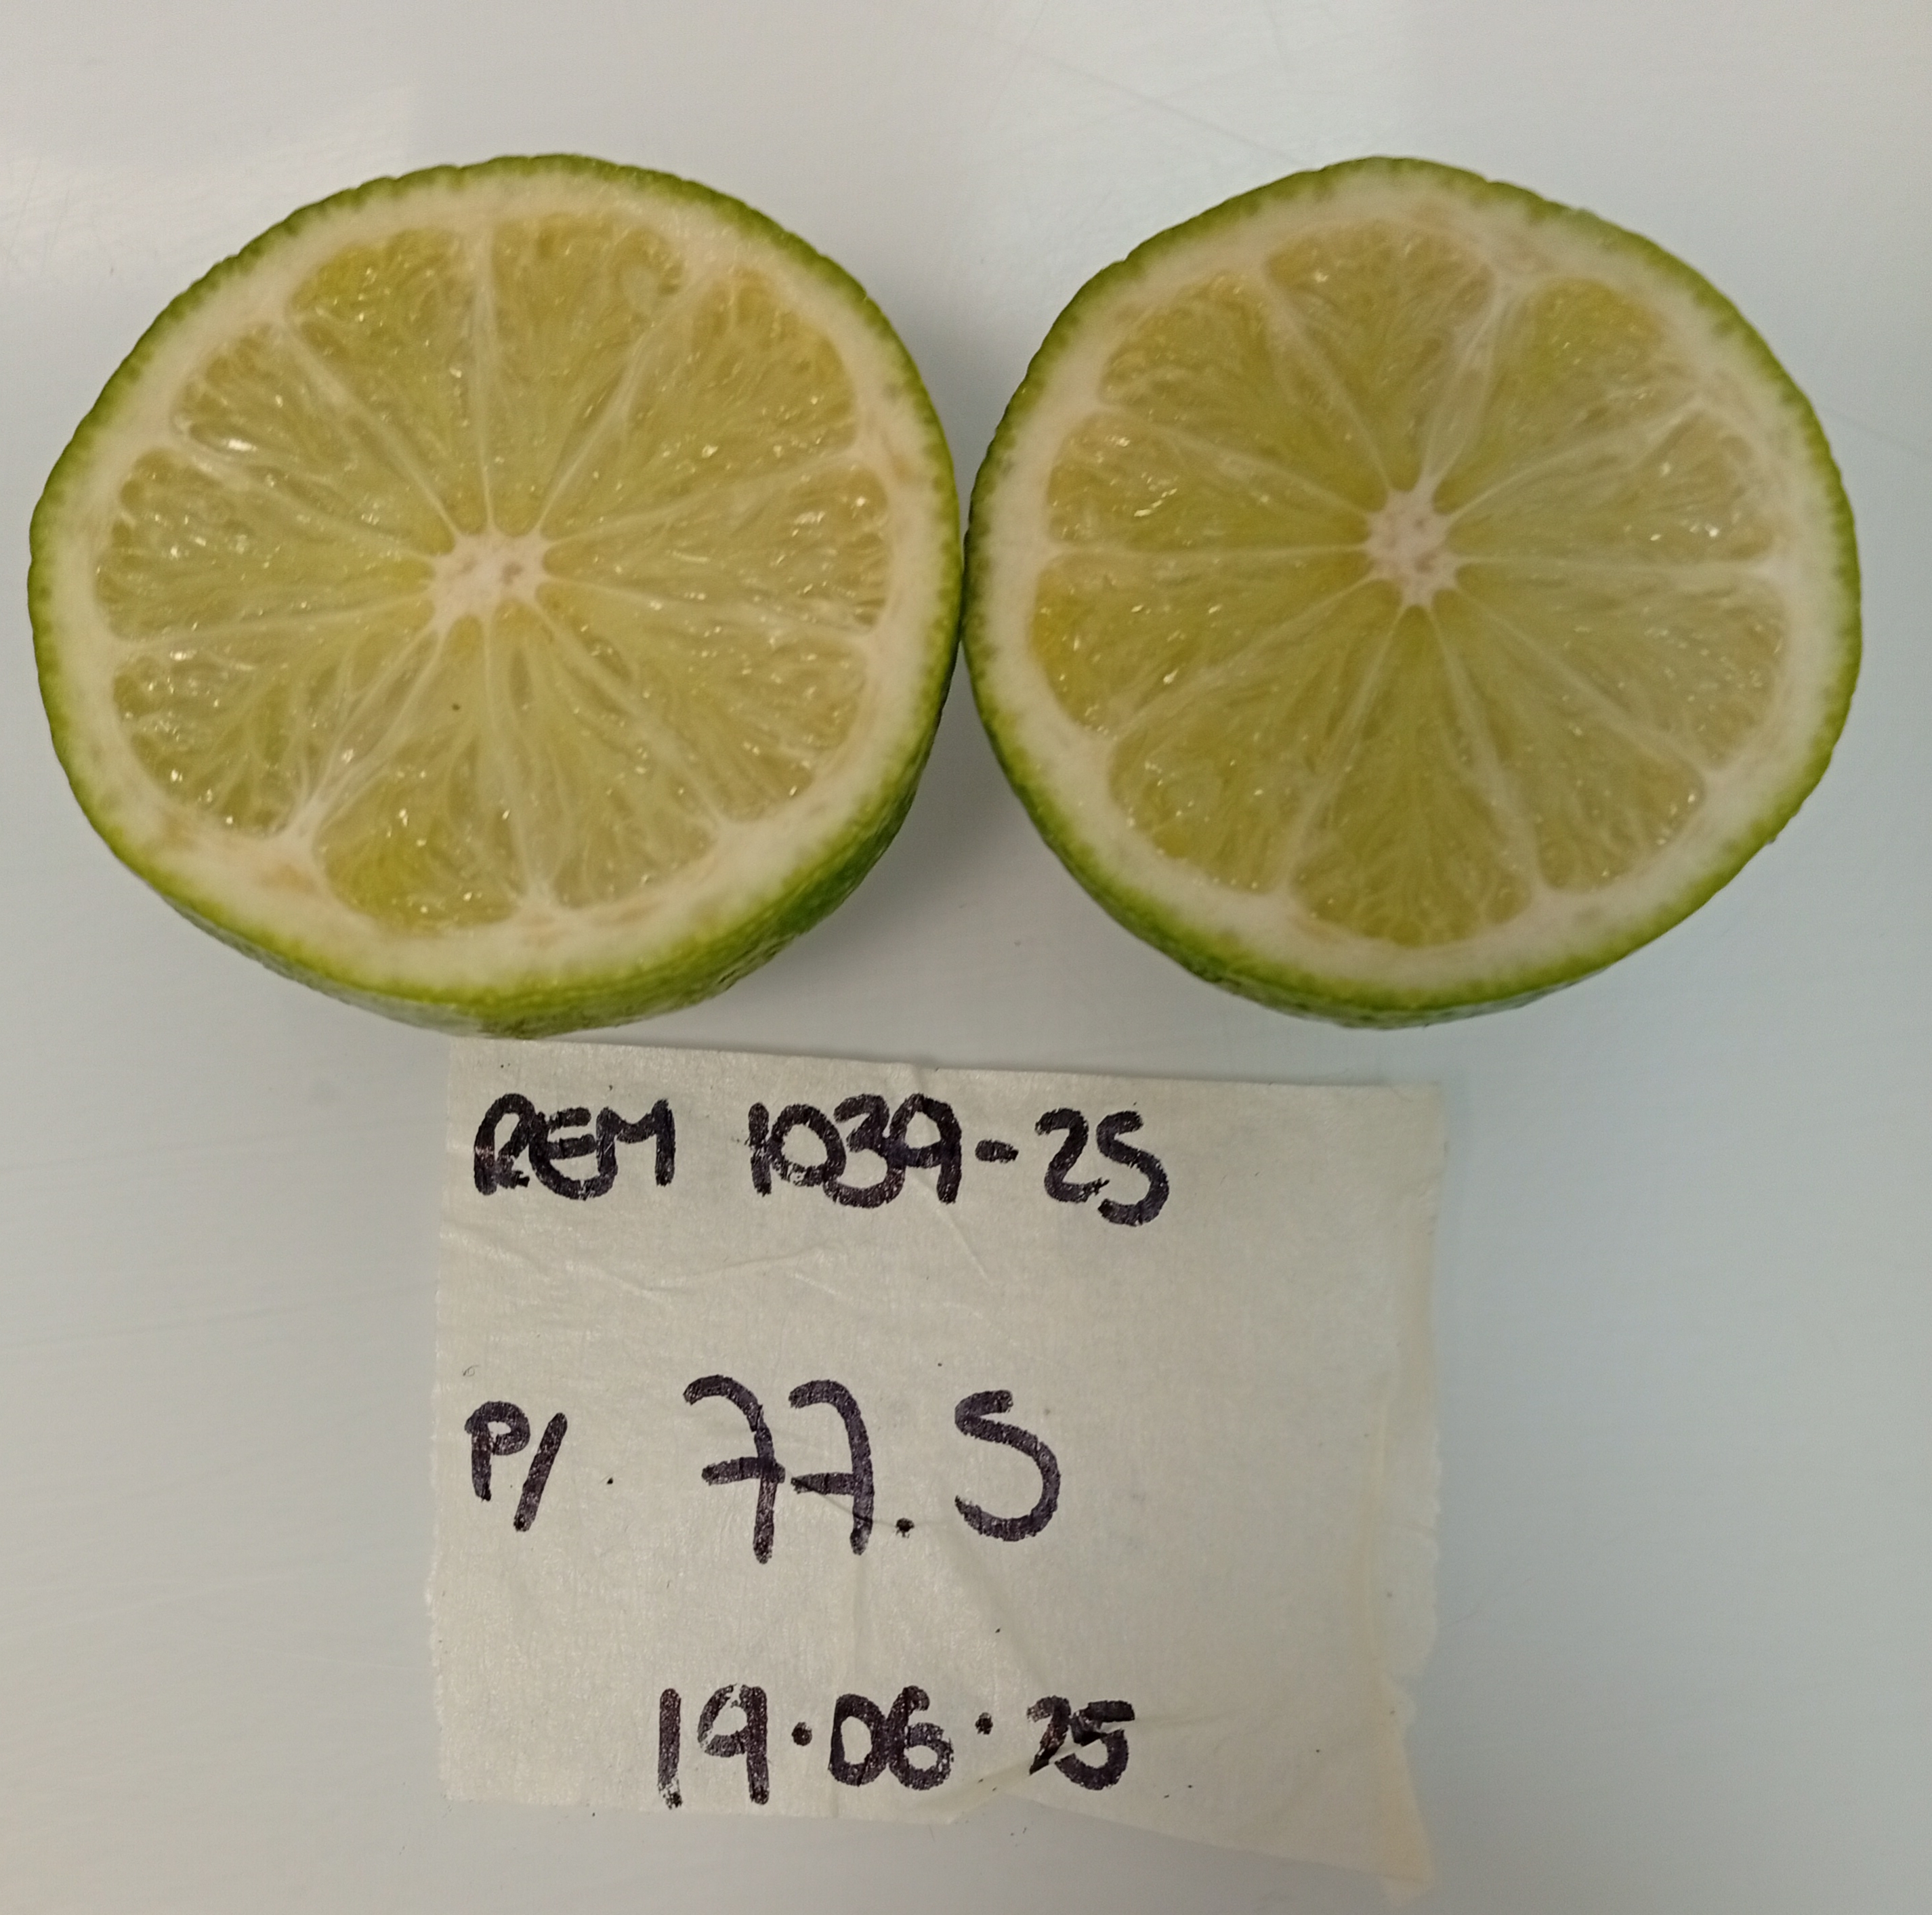 REM 1039-25
P/. 77.5
19.06.25